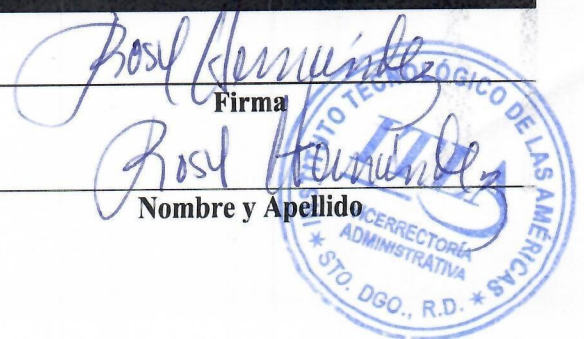 Rosy Hernández
Firma
Rosy Hernández
Nombre y Apellido
INSTITUTO TECNOLÓGICO DE LAS AMÉRICAS
ITLA
VICERRECTORÍA
ADMINISTRATIVA
* STO. DGO., R.D. *